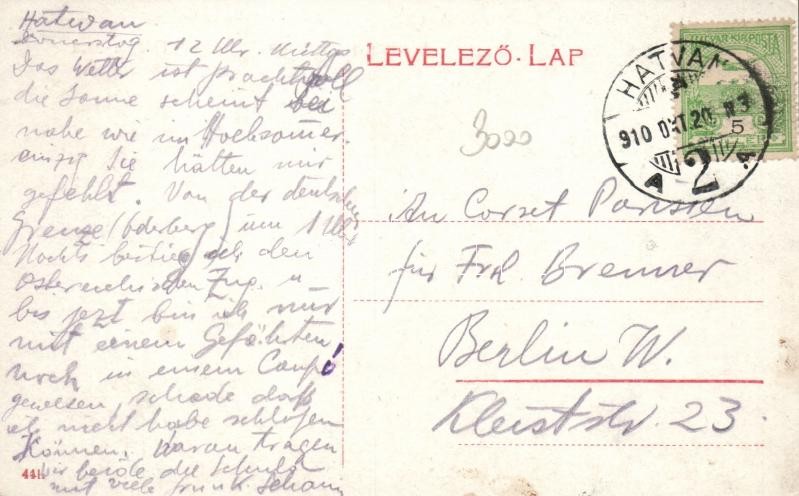 Hatvan
Donerstag. 12 Uhr. Mittgs
Das Wetter ist prachtvoll
die Sonne scheint bei
nahe wie im Hochsomer.
einzig Sie hätten mir
gefehlt. Von der deutschen
Grenze/Oderberg um 1 Uhr
Nachts bestieg ich den
Österreichischen Zug. u
bis jezt bin ich nur
mit einem Gefährten
noch in einem Coupé
gewesen, schade daß
ich nicht habe schlafen
können. Daran tragen
wir beide die Schuld
mit viele
LEVELEZŐ-LAP
3000
MAGYAR KIR POSTA
5
HATVAN
910 OKT 20
A 2 A
An Corset Parisien
für Frl. Brenner
Berlin W.
Kleiststr. 23.